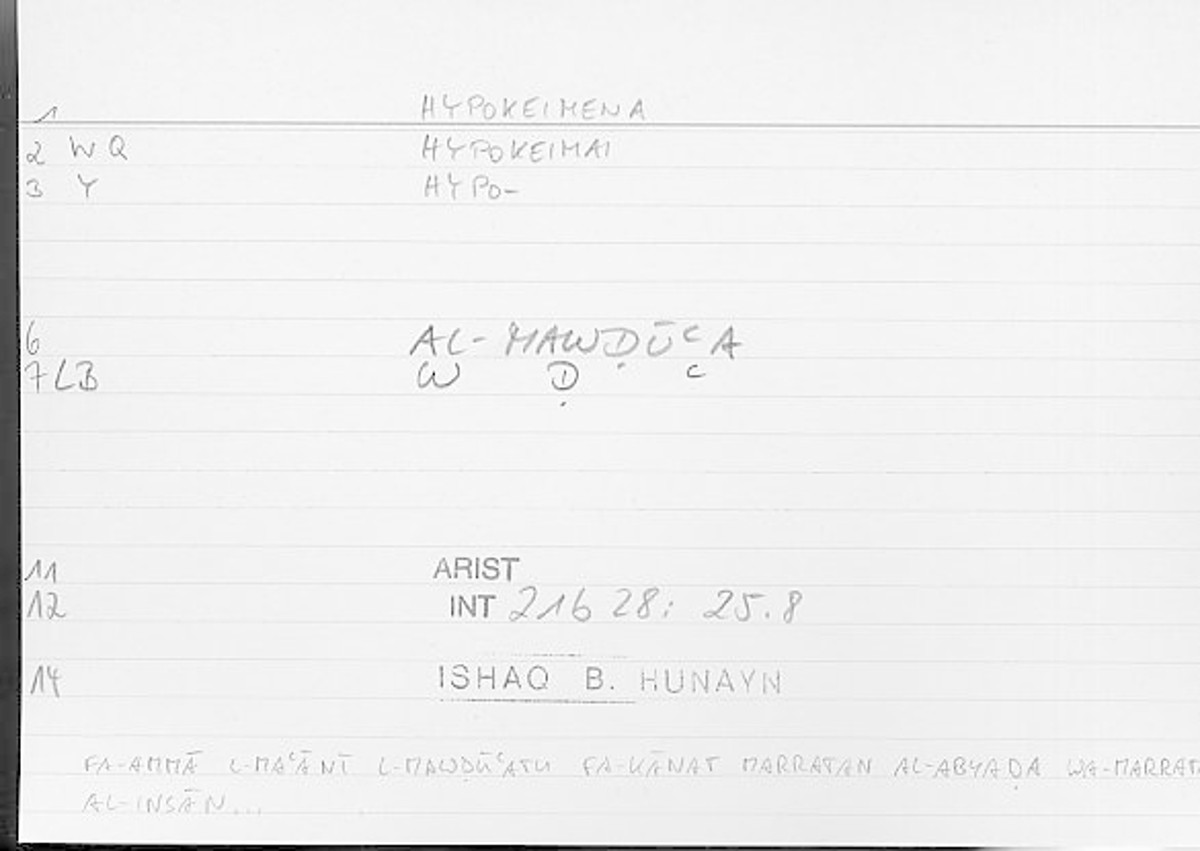 1 HYPOKEIMENA
2 W Q HYPOKEIMAI
3 Y HYPO-
6 AL-MAWḌŪʿA
7 LB W Ḍ ʿ
11 ARIST
12 INT 21b 28: 25.8
14 ISHAQ B. HUNAYN
FA-AMMĀ L-MAʿĀNĪ L-MAWḌŪʿATU FA-KĀNAT MARRATAN AL-ABYAḌA WA-MARRATA
AL-INSĀN...